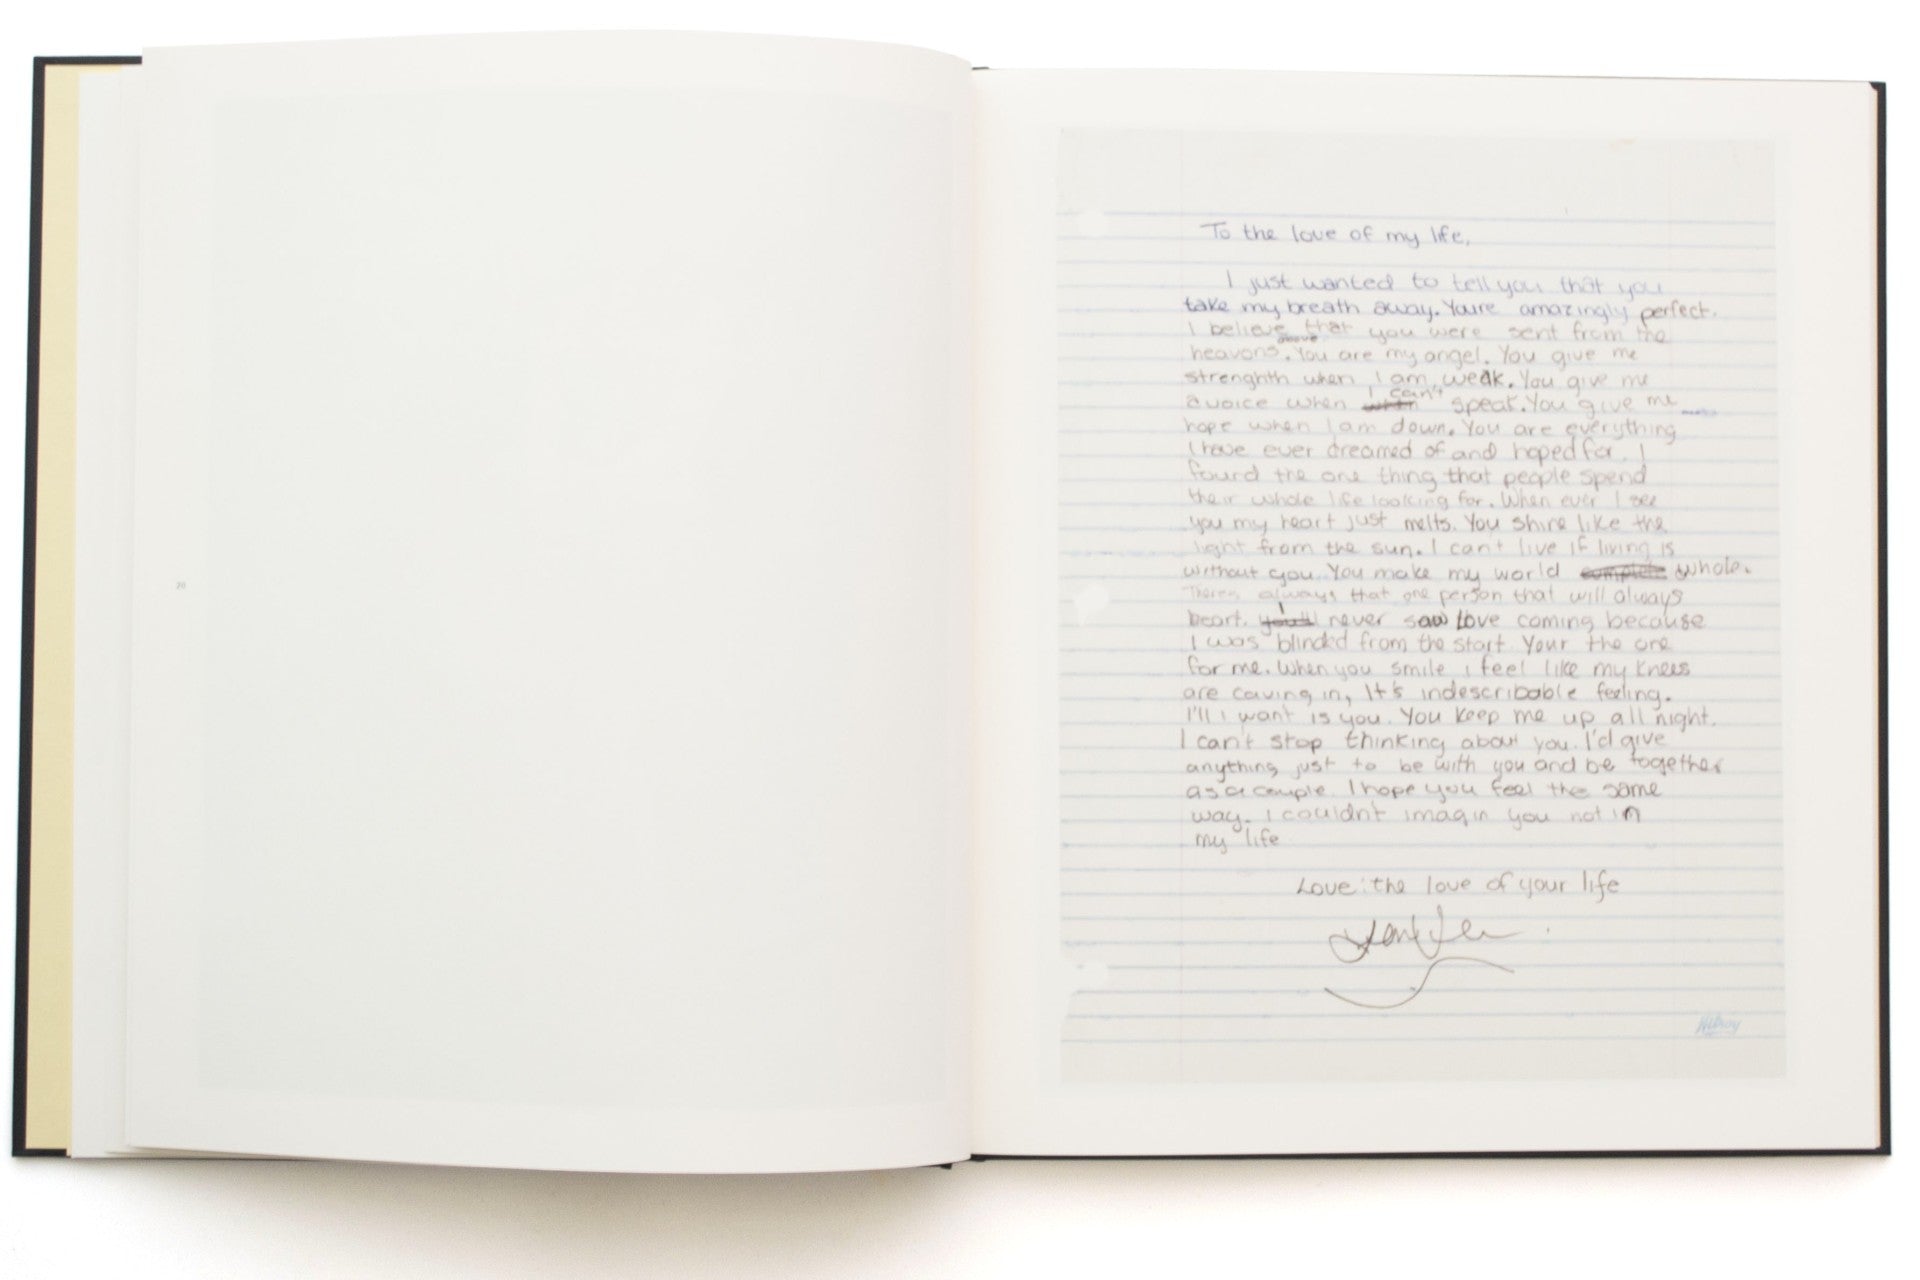 20
To the love of my life,
I just wanted to tell you that you
take my breath away. Youre amazingly perfect.
I believe that you were sent from the
heavons above. You are my angel. You give me
strenghth when I am weak. You give me
a voice when I can't speak. You give me
hope when I am down. You are everything
I have ever dreamed of and hoped for. I
found the one thing that people spend
their whole life looking for. When ever I see
you my heart just melts. You shine like the
light from the sun. I can't live if living is
without you. You make my world complete whole.
Theres always that one person that will always
heart. you'll I never saw love coming because
I was blinded from the start. Your the one
for me. When you smile i feel like my knees
are caving in, It's indescribable feeling.
I'll i want is you. You keep me up all night.
I can't stop thinking about you. I'd give
anything just to be with you and be together
as a couple. I hope you feel the same
way. I couldn't imagin you not in
my life
Love: the love of your life
Hilroy